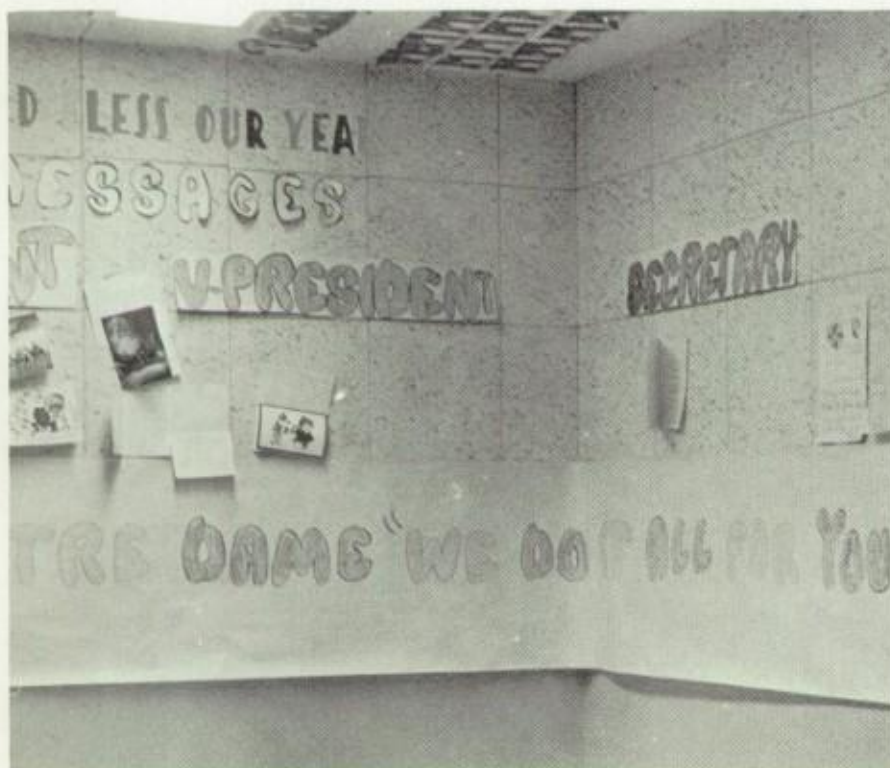 D LESS OUR YEA
MESSAGES
NT V-PRESIDENT SECRETARY
TRE DAME "WE DO IT ALL FOR YOU